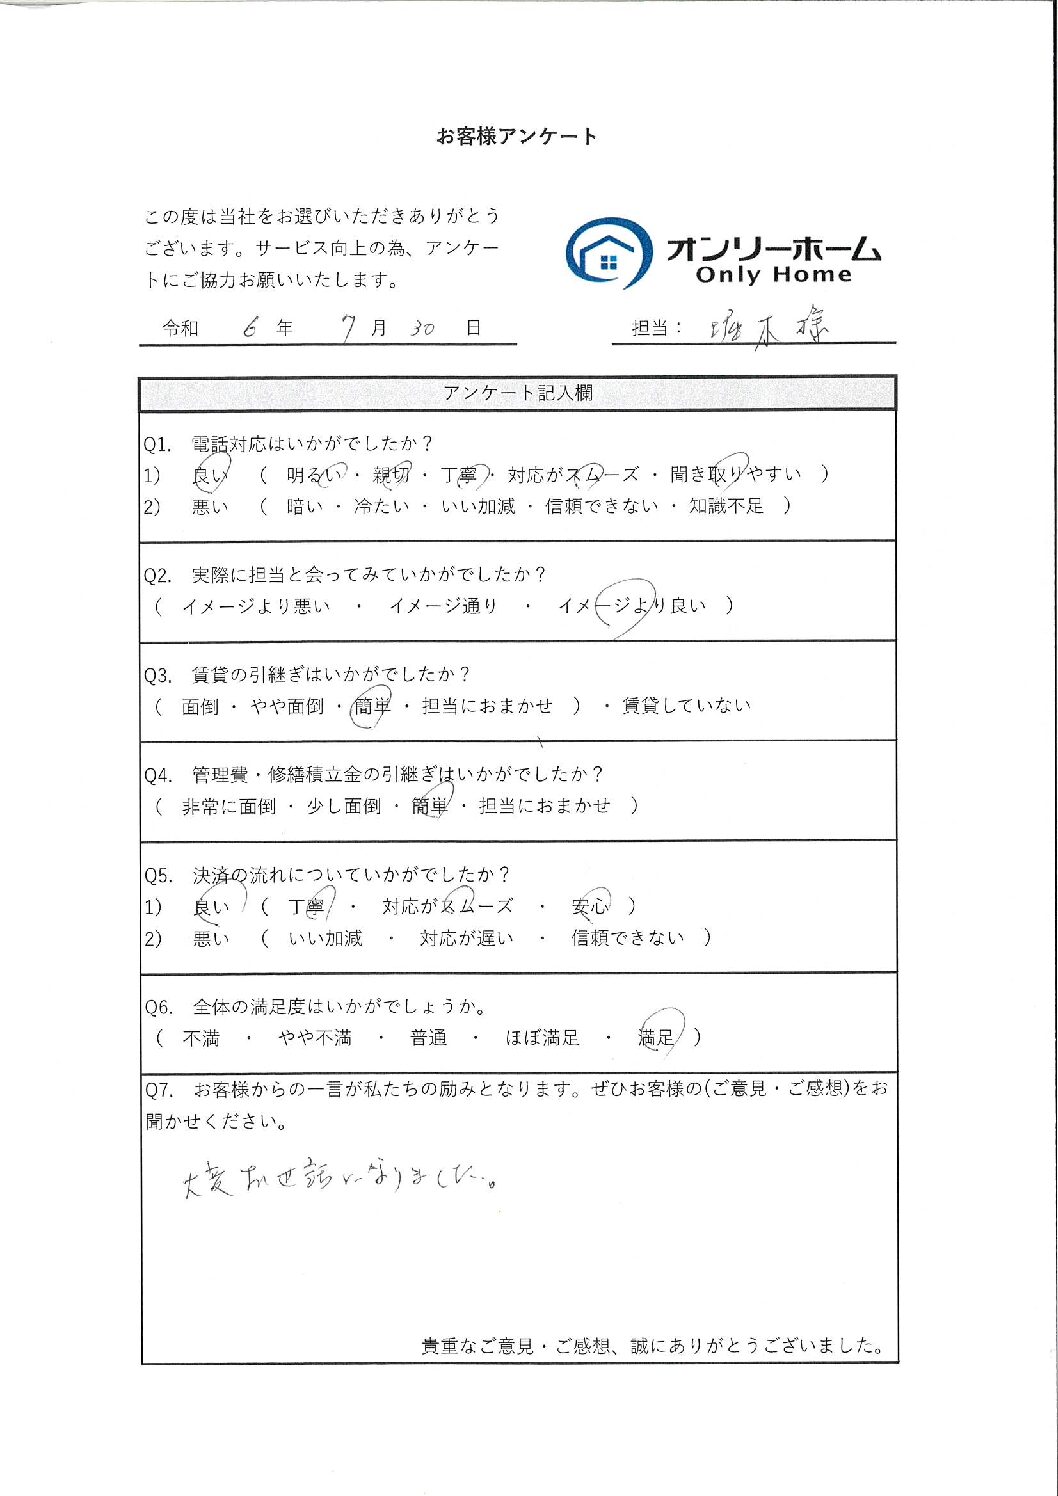 お客様アンケート
この度は当社をお選びいただきありがとう
ございます。サービス向上の為、アンケー
トにご協力お願いいたします。
オンリーホーム
Only Home
令和 6 年 7 月 30 日
担当： 堀木様
アンケート記入欄
Q1. 電話対応はいかがでしたか？
1) 良い （ 明るい・親切・丁寧・対応がスムーズ・聞き取りやすい ）
2) 悪い （ 暗い・冷たい・いい加減・信頼できない・知識不足 ）
Q2. 実際に担当と会ってみていかがでしたか？
（ イメージより悪い ・ イメージ通り ・ イメージより良い ）
Q3. 賃貸の引継ぎはいかがでしたか？
（ 面倒・やや面倒・簡単・担当におまかせ ）・賃貸していない
Q4. 管理費・修繕積立金の引継ぎはいかがでしたか？
（ 非常に面倒・少し面倒・簡単・担当におまかせ ）
Q5. 決済の流れについていかがでしたか？
1) 良い （ 丁寧 ・ 対応がスムーズ ・ 安心 ）
2) 悪い （ いい加減 ・ 対応が遅い ・ 信頼できない ）
Q6. 全体の満足度はいかがでしょうか。
（ 不満 ・ やや不満 ・ 普通 ・ ほぼ満足 ・ 満足 ）
Q7. お客様からの一言が私たちの励みとなります。ぜひお客様の(ご意見・ご感想)をお
聞かせください。
大変お世話になりました。
貴重なご意見・ご感想、誠にありがとうございました。